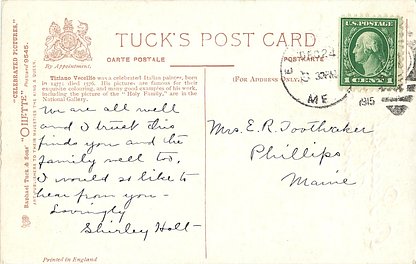 TUCK'S POST CARD
CARTE POSTALE
POSTKARTE
By Appointment.
(FOR ADDRESS ONLY.)
Tiziano Vecellio was a celebrated Italian painter, born
in 1477, died 1576. His pictures are famous for their
exquisite colouring, and many good examples of his work,
including the picture of the "Holy Family," are in the
National Gallery.
"CELEBRATED PICTURES."
"OILETTE" Postcard 9545.
Raphael Tuck & Sons'
ART PUBLISHERS TO THEIR MAJESTIES THE KING & QUEEN.
U.S. POSTAGE
1 CENT 1
DEC 24
ME
1915
We are all well
and I trust this
finds you and the
family well too.
I would so like to
hear from you—
Lovingly
Shirley Holt—
Mrs. E. R. Toothaker
Phillips
Maine
Printed in England